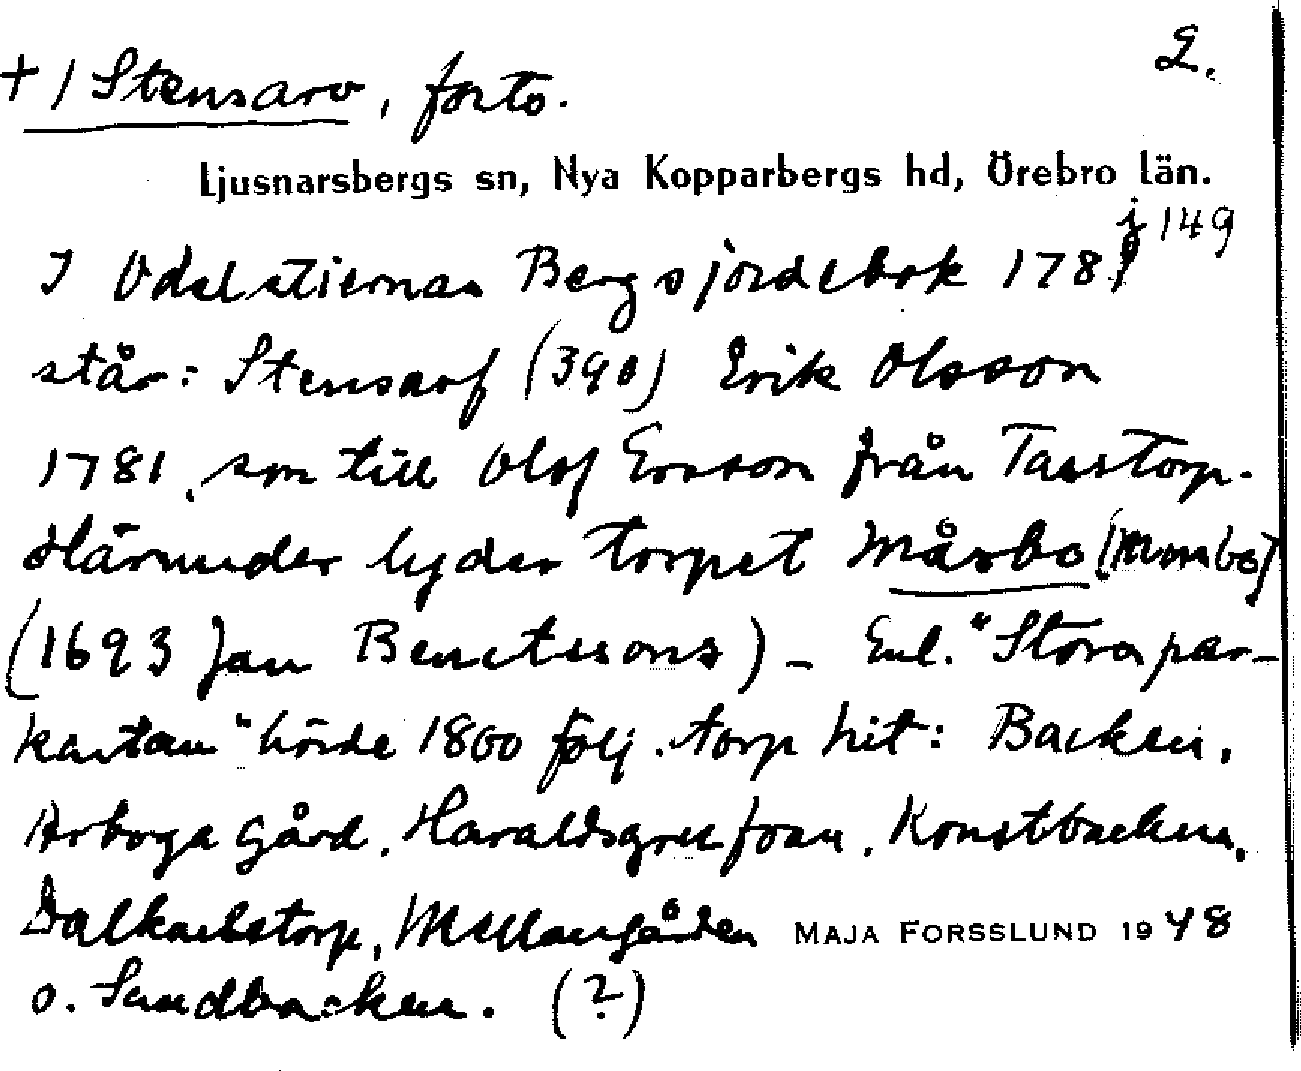 2.
+ / Stensarv, forts.
Ljusnarsbergs sn, Nya Kopparbergs hd, Örebro län.
j 149
I Odelstiernas Bergsjordebok 1781
står: Stensarf (390) Erik Olsson
1781, son till Olof Ersson från Tasstorp.
Härunder lyder torpet Mårbo
(1693 Jan Benctssons) - Enl. "Storapar-
kartan" hörde 1800 följ. torp hit: Backen,
Arboga Gård, Haraldsgrufvan, Konstbacken,
Dalkarlstorp, Mellangården MAJA FORSSLUND 1948
o. Sandbacken. (?)